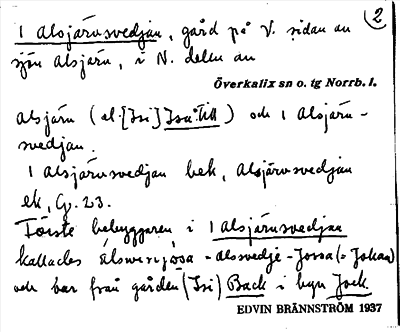 2
1 Alsjärvsvedjan, gård på V. sidan av
sjön Alsjärv, i N. delen av
Överkalix sn o. tg Norrb. l.
Alsjärv (el. [Isi] ) och 1 Alsjärv-
svedjan.
1 Alsjärvsvedjan bek, Alsjärvsvedjan
ek, 23.
Förste bebyggaren i 1 Alsjärvsvedjan
kallades - Alsvedje - Jossa (= Johan)
och var från gården (Isi) Back i byn
EDVIN BRÄNNSTRÖM 1937